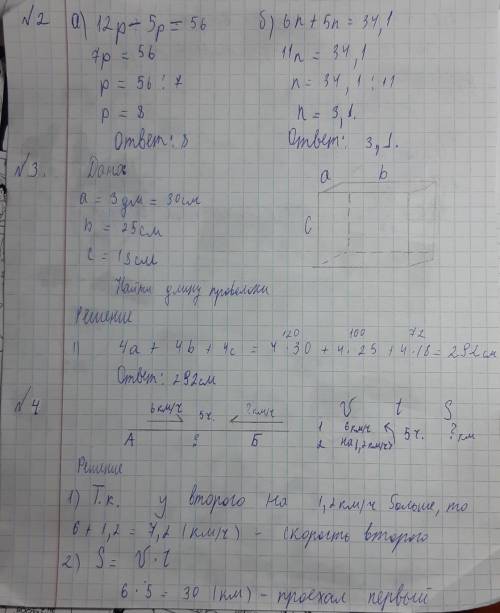 №2 а) 12p - 5p = 56 б) 6n + 5n = 34,1
7p = 56 11n = 34,1
p = 56 : 7 n = 34,1 : 11
p = 8 n = 3,1.
Ответ: 8 Ответ: 3,1.
№3. Дано: a b
a = 3дм = 30см
b = 25см c
c = 18см
Найти длину проволоки
Решение
120 100 72
1) 4a + 4b + 4c = 4·30 + 4·25 + 4·18 = 292см
Ответ: 292см
№4 6км/ч 5ч. ?км/ч V t S
А ? Б 1 6км/ч 5ч. ? км
2 на 1,2км/ч>
Решение
1) Т.к. у второго на 1,2км/ч больше, то
6 + 1,2 = 7,2 (км/ч) - скорость второго
2) S = V·t
6·5 = 30 (км) - проехал первый